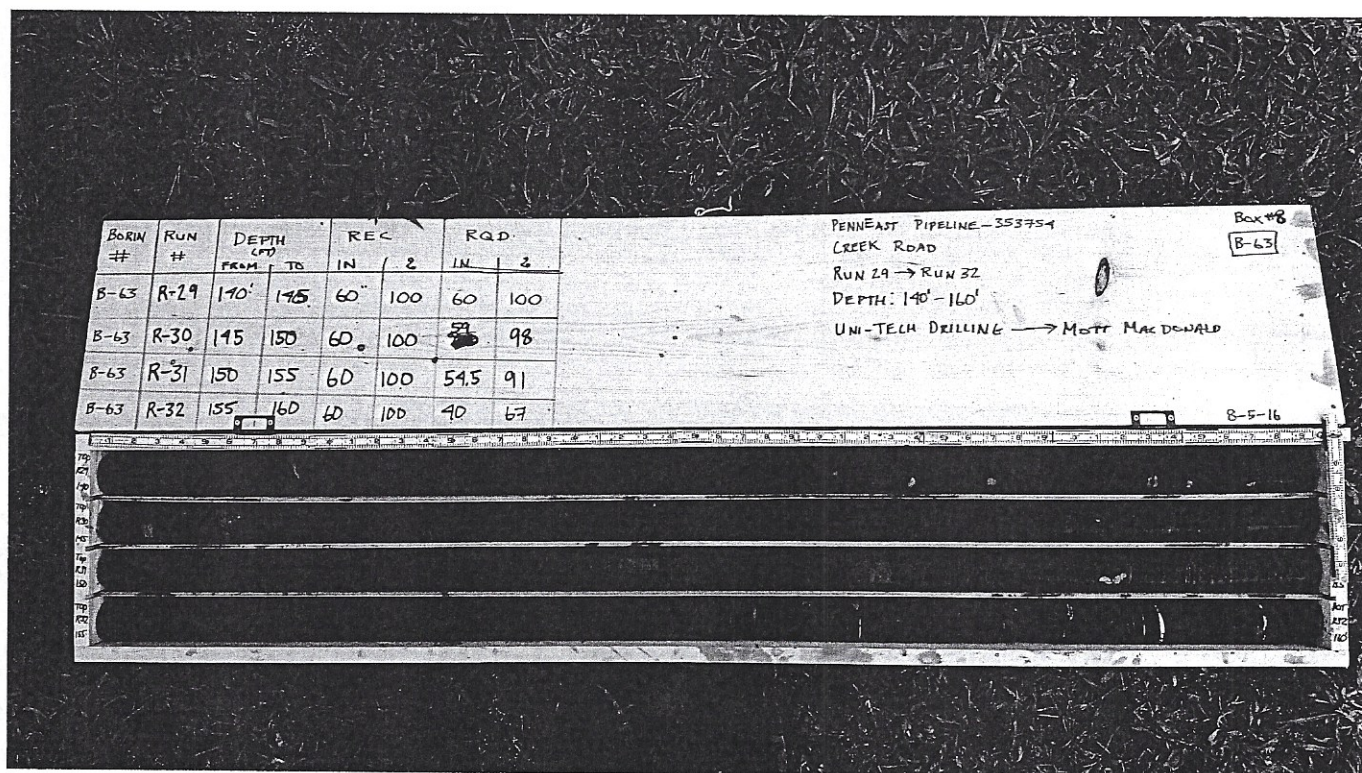 BORIN # RUN # DEPTH (FT) REC RQD
FROM TO IN % IN %
B-63 R-29 140' 145 60" 100 60 100
B-63 R-30 145 150 60 100 59 98
B-63 R-31 150 155 60 100 54.5 91
B-63 R-32 155 160 60 100 40 67
PENNEAST PIPELINE-353754
CREEK ROAD
RUN 29 → RUN 32
DEPTH: 140'-160'
UNI-TECH DRILLING → MOTT MACDONALD
BOX #8
B-63
8-5-16
BOT
R32
160'